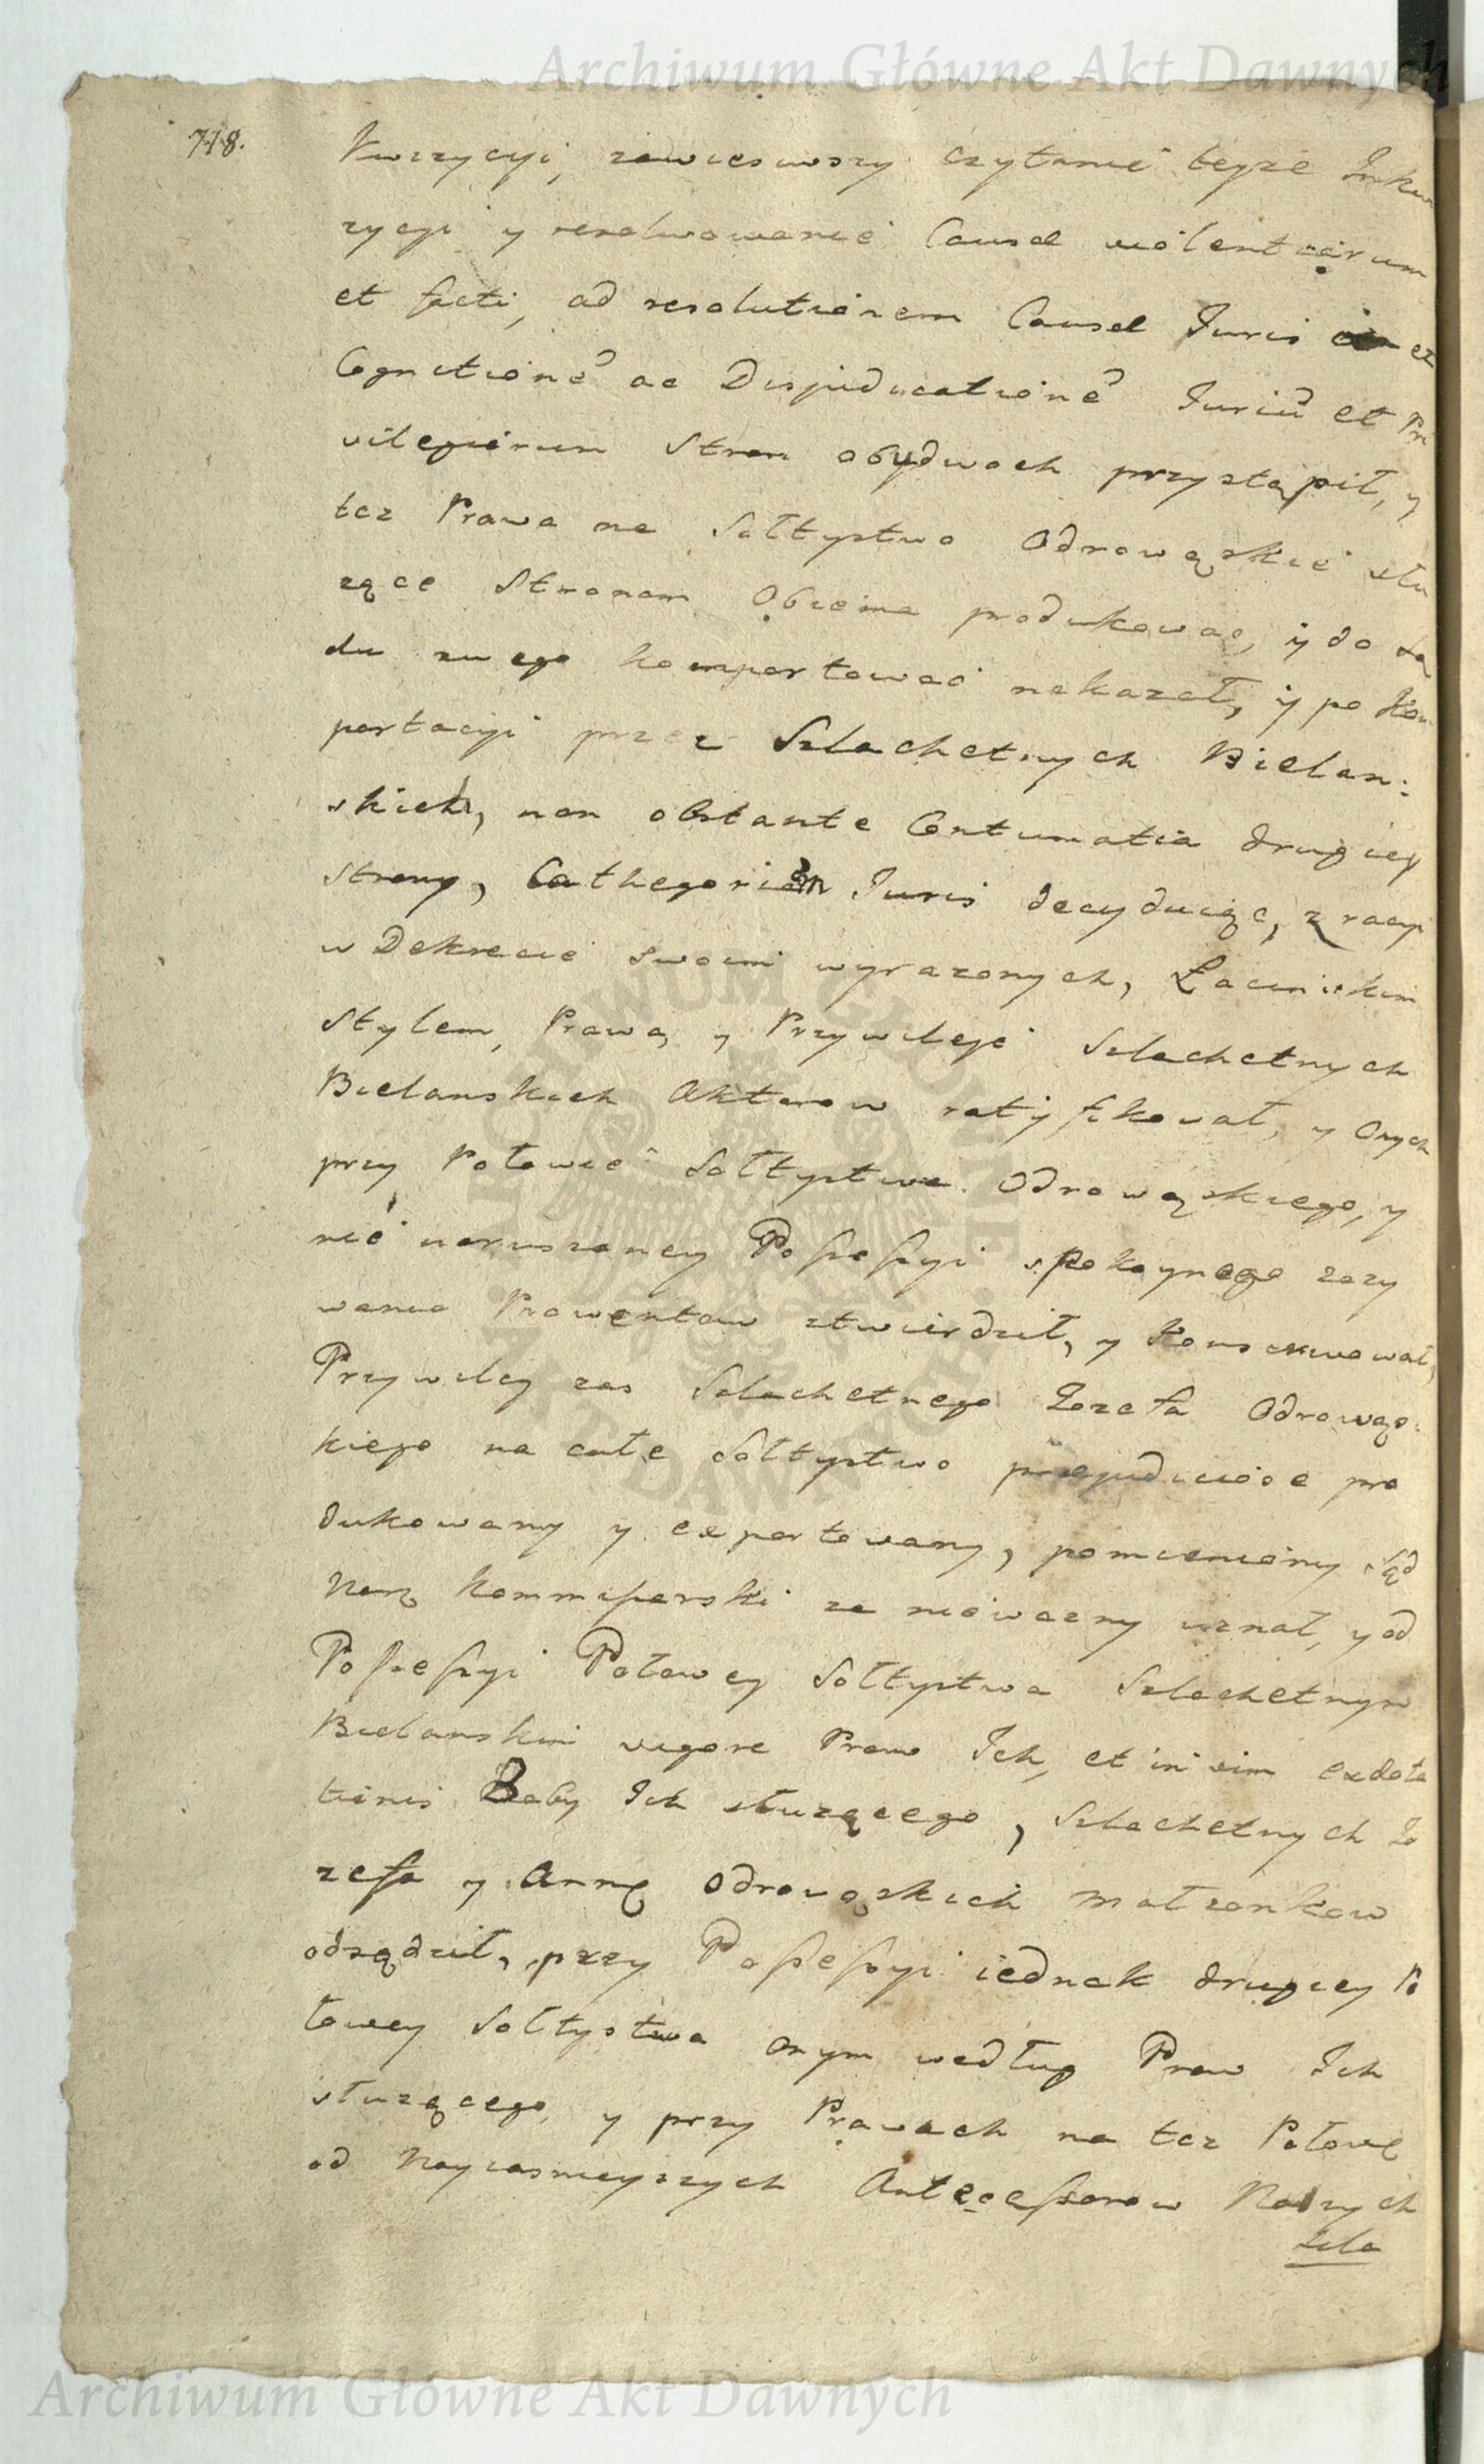 Archiwum Główne Akt Dawnych
718.
kwizycyi, zawiesiwszy czytanie teyze Inkw
zycyi y rezolwowanie Causæ violentiarum
et facti, ad resolutionem Causæ Juris et
Cognitione ac Disjudicatione Juriu et Pri
vilegiorum Stron obydwoch przystąpił, y
tez Prawa na Sołtystwo Odrowąskie słu
zące Stronom Obiema produkowac, y do Są
du swego komportować nakazał, y po Kom
portacyi przez Szlachetnych Bielan:
skich, non obstante Contumatia drugiey
strony, Cathegoriam Juris decyduiąc, z racyi
w Dekrecie swoim wyrazonych, Łacinskim
Stylem, Prawa y Przywileje Szlachetnych
Bielanskich Aktorow ratyfikował, y Onych
przy Połowie Sołtystwa Odrowąskiego, y
nie naruszoney Possessyi spokoynego zazy
wania Prowentow stwierdził, y Konserwował,
Przywiley zas Szlachetnego Jozefa Odrowąs:
kiego na całe Sołtystwo præjudiciose pro
dukowany y exportowany, pomieniony Sąd
Nasz Kommissarski za niewazny uznał, y od
Possessyi Połowey Sołtystwa Szlachetnym
Bielanskim vigore Praw Ich, et in vim exdota
tionis Baby Ich słuzącego, Szlachetnych Jo
zefa y Annę Odrowąskich Małzonkow
odsądził, przy Possessyi iednak drugiey Po
łowey Sołtystwa onym według Praw Ich
słuzącego, y przy Prawach na tez Połowę
od Nayiasnieyszych Antecessorow Naszych
Szla
Archiwum Główne Akt Dawnych